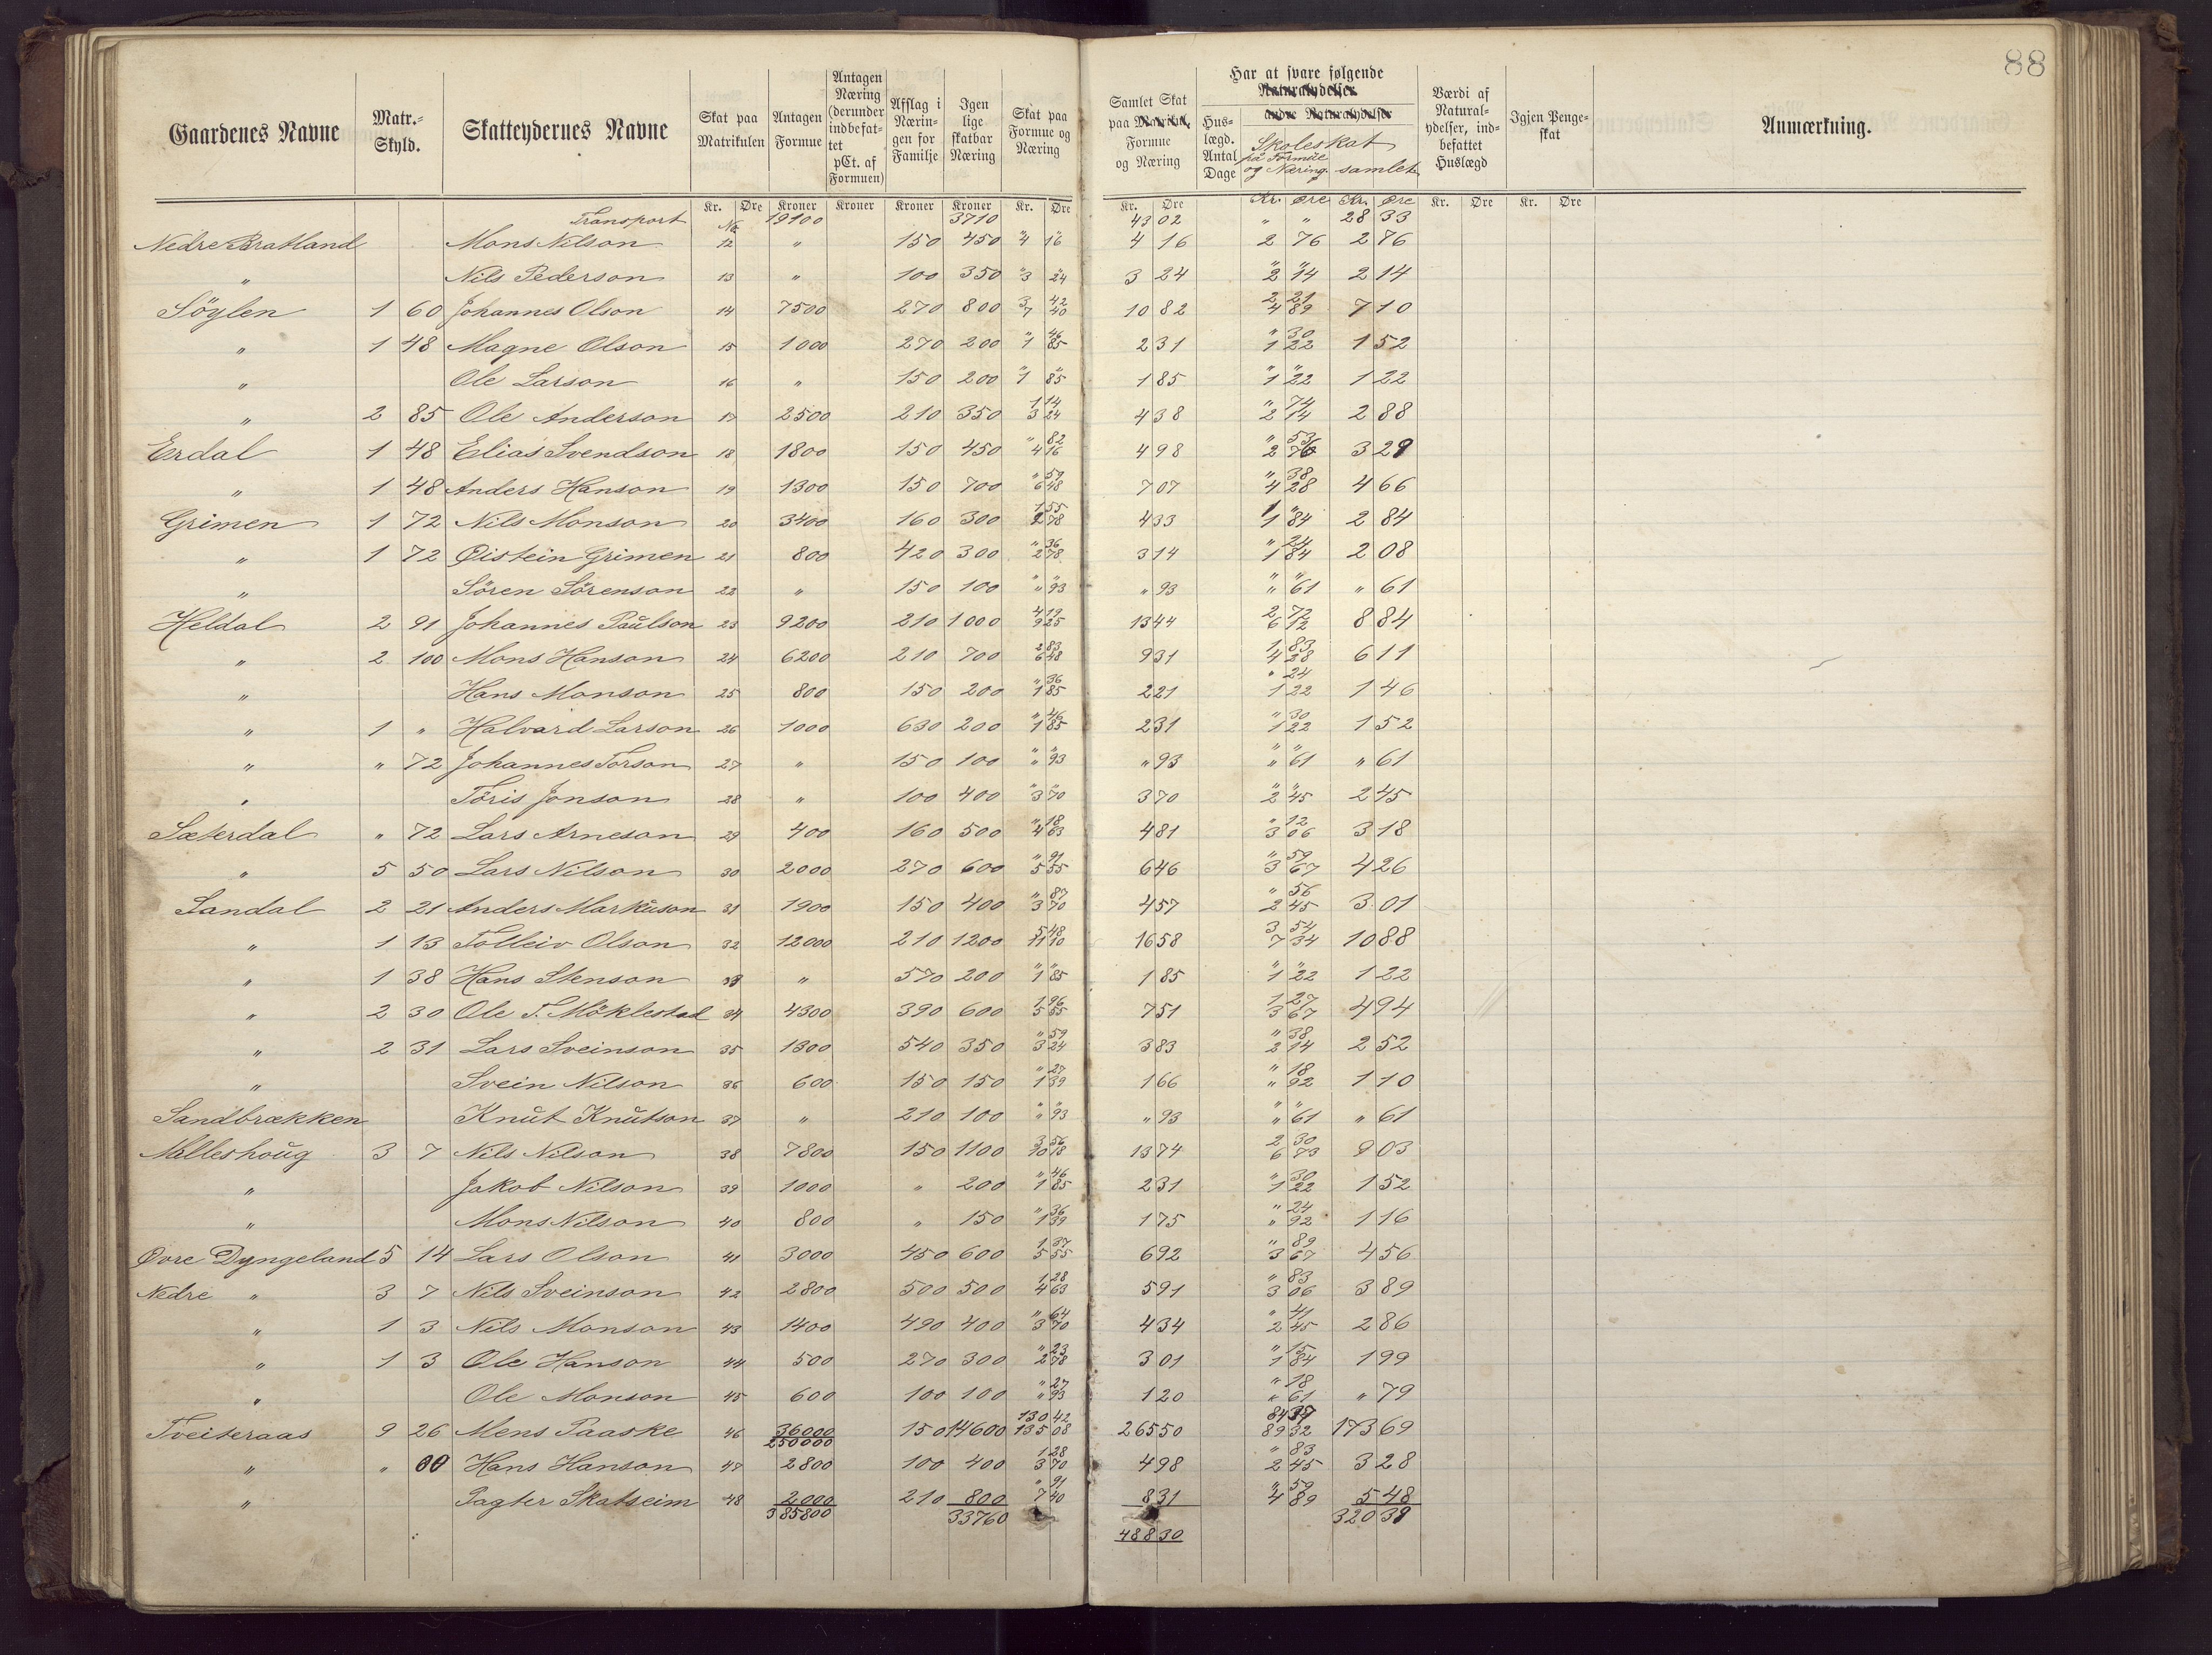 88
Gaardenes Navne | Matr.-Skyld. | Skatteydernes Navne | Skat paa Matrikulen | Antagen Formue | Antagen Næring (derunder indbefattet pCt. af Formuen) | Afslag i Næringen for Familje | Igen lige skatbar Næring | Skat paa Formue og Næring | Samlet Skat paa Formue og Næring | Har at svare følgende | Huslægd. Antal Dage | Skoleskat på Formue og Næring. | samlet | Værdi af Naturalydelser, indbefattet Huslægd | Igjen Pengeskat | Anmærkning.
Kr. Øre Kroner Kroner Kroner Kroner Kr. Øre Kr. Øre Kr. Øre Kr. Øre Kr. Øre Kr. Øre
Transport No 19100 3710 43 02 " " 28 33
Nedre Bratland Mons Nilson 12 " 150 450 " " 4 16 4 16 2 76 2 76
" Nils Pederson 13 " 100 350 " " 3 24 3 24 " " 2 14 2 14
Söylen 1 60 Johannes Olson 14 7500 270 800 3 42 7 40 10 82 2 21 4 89 7 10
" 1 48 Magne Olson 15 1000 270 200 " 46 1 85 2 31 " 30 1 22 1 52
" Ole Larson 16 " 150 200 " " 1 85 1 85 " " 1 22 1 22
" 2 85 Ole Anderson 17 2500 210 350 1 14 3 24 4 38 " 74 2 14 2 88
Erdal 1 48 Elias Svendson 18 1800 150 450 " 82 4 16 4 98 " 53 2 76 3 29
" 1 48 Anders Hanson 19 1300 150 700 " 59 6 48 7 07 " 38 4 28 4 66
Grimen 1 72 Nils Monson 20 3400 160 300 1 55 2 78 4 33 1 " 1 84 2 84
" 1 72 Øistein Grimen 21 800 420 300 " 36 2 78 3 14 " 24 1 84 2 08
" Sören Sörenson 22 " 150 100 " " " 93 " 93 " " " 61 " 61
Heldal 2 91 Johannes Paulson 23 9200 210 1000 4 19 9 25 13 44 2 72 6 12 8 84
" 2 100 Mons Hanson 24 6200 210 700 2 83 6 48 9 31 1 83 4 28 6 11
" Hans Monson 25 800 150 200 " 36 1 85 2 21 " 24 1 22 1 46
" 1 " Halvard Larson 26 1000 630 200 " 46 1 85 2 31 " 30 1 22 1 52
" " 72 Johannes Torson 27 " 150 100 " " " 93 " 93 " " " 61 " 61
" Töris Jonson 28 " 100 400 " " 3 70 3 70 " " 2 45 2 45
Sæterdal " 72 Lars Arneson 29 400 160 500 " 18 4 63 4 81 " 12 3 06 3 18
" 5 50 Lars Nilson 30 2000 270 600 " 91 5 55 6 46 " 59 3 67 4 26
Sandal 2 21 Anders Markuson 31 1900 150 400 " 87 3 70 4 57 " 56 2 45 3 01
" 1 13 Tolleiv Olson 32 12000 210 1200 5 48 11 10 16 58 3 54 7 34 10 88
" 1 38 Hans Stenson 33 " 570 200 " " 1 85 1 85 " " 1 22 1 22
" 2 30 Ole T. Möklestad 34 4300 390 600 1 96 5 55 7 51 1 27 3 67 4 94
" 2 31 Lars Sveinson 35 1300 540 350 " 59 3 24 3 83 " 38 2 14 2 52
" Svein Nilson 36 600 150 150 " 27 1 39 1 66 " 18 " 92 1 10
Sandbrækken Knut Knutson 37 " 210 100 " " " 93 " 93 " " " 61 " 61
Milleshoug 3 7 Nils Nilson 38 7800 150 1100 3 56 10 18 13 74 2 30 6 73 9 03
" Jakob Nilson 39 1000 " 200 " 46 1 85 2 31 " 30 1 22 1 52
" Mons Nilson 40 800 " 150 " 36 1 39 1 75 " 24 " 92 1 16
Øvre Dyngeland 5 14 Lars Olson 41 3000 450 600 1 37 5 55 6 92 " 89 3 67 4 56
Nedre " 3 7 Nils Sveinson 42 2800 500 500 1 28 4 63 5 91 " 83 3 06 3 89
" 1 3 Nils Monson 43 1400 490 400 " 64 3 70 4 34 " 41 2 45 2 86
" 1 3 Ole Hanson 44 500 270 300 " 23 2 78 3 01 " 15 1 84 1 99
" Ole Monson 45 600 100 100 " 27 " 93 1 20 " 18 " 61 " 79
Tveiteraas 9 26 Mens Paaske 46 36000 250000 150 14600 130 42 135 08 265 50 84 37 89 32 173 69
" " 00 Hans Hanson 47 2800 100 400 1 28 3 70 4 98 " 83 2 45 3 28
" Pagter Skatseim 48 2000 210 800 " 91 7 40 8 31 " 59 4 89 5 48
385800 33760 320 39
488 30